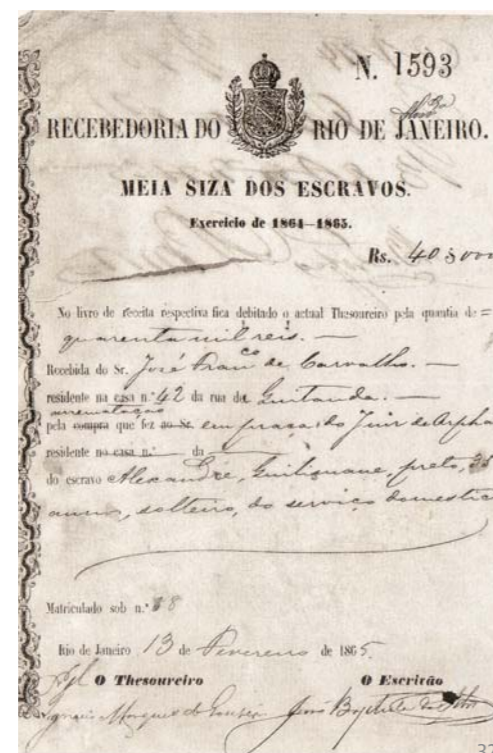 N. 1593
RECEBEDORIA DO RIO DE JANEIRO.
MEIA SIZA DOS ESCRAVOS.
Exercicio de 1864—1865.
Rs. 40$000
No livro de receita respectiva fica debitado o actual Thesoureiro pela quantia de =
quarenta mil reis. —
Recebida do Sr. José Franco de Carvalho. —
residente na casa n.º 42 da rua da Quitanda. —
arrematação
pela compra que fez ao Sr. em praça do Juiz de Orpha
residente na casa n.º — da —
do escravo Alexandre, preto, 35
annos, solteiro, do serviço domestic
Matriculado sob n.º
Rio de Janeiro 13 de Fevereiro de 1865.
O Thesoureiro O Escrivão
Ignacio Marques de Gouvêa José Baptista